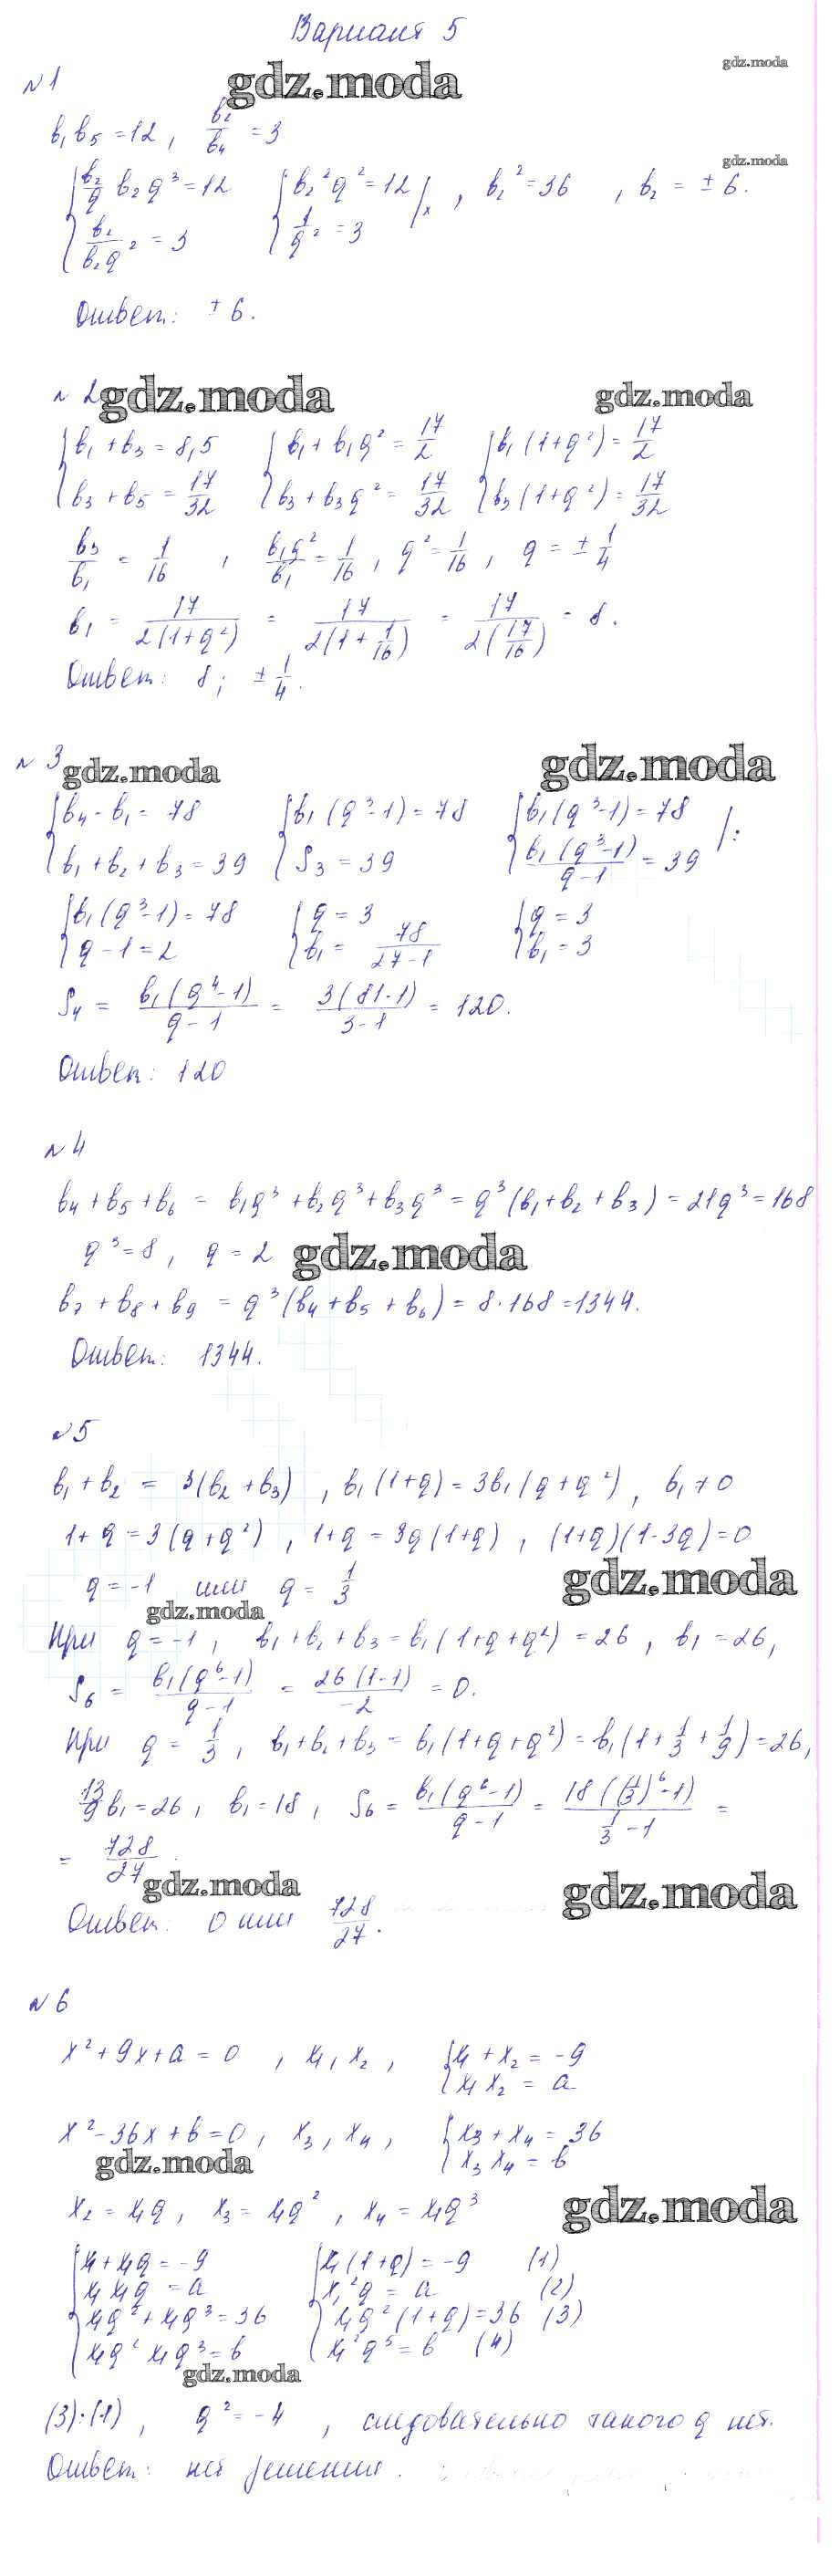 Вариант 5
gdz.moda
gdz.moda
№1
b₁b₅ = 12, b₂/b₄ = 3
gdz.moda
{ b₂/q b₂q³ = 12 { b₂²q² = 12 |x , b₂² = 36 , b₂ = ± 6.
{ b₂/b₂q² = 3 { 1/q² = 3
Ответ: ± 6.
№2
gdz.moda
gdz.moda
{ b₁ + b₃ = 8,5 { b₁ + b₁q² = 17/2 { b₁(1+q²) = 17/2
{ b₃ + b₅ = 17/32 { b₃ + b₃q² = 17/32 { b₃(1+q²) = 17/32
b₃/b₁ = 1/16 , b₁q²/b₁ = 1/16 , q² = 1/16 , q = ± 1/4
b₁ = 17/2(1+q²) = 17/2(1+1/16) = 17/2(17/16) = 8.
Ответ: 8; ± 1/4.
№3
gdz.moda
gdz.moda
{ b₄ - b₁ = 78 { b₁(q³-1) = 78 { b₁(q³-1) = 78 | :
{ b₁ + b₂ + b₃ = 39 { S₃ = 39 { b₁(q³-1)/q-1 = 39
{ b₁(q³-1) = 78 { q = 3 { q = 3
{ q - 1 = 2 { b₁ = 78/27-1 { b₁ = 3
S₄ = b₁(q⁴-1)/q-1 = 3(81-1)/3-1 = 120.
Ответ: 120
№4
b₄ + b₅ + b₆ = b₁q³ + b₂q³ + b₃q³ = q³(b₁ + b₂ + b₃) = 21q³ = 168
q³ = 8, q = 2
gdz.moda
b₇ + b₈ + b₉ = q³(b₄ + b₅ + b₆) = 8·168 = 1344.
Ответ: 1344.
№5
b₁ + b₂ = 3(b₂ + b₃) , b₁(1+q) = 3b₁(q+q²), b₁ ≠ 0
1+q = 3(q+q²) , 1+q = 3q(1+q) , (1+q)(1-3q) = 0
q = -1 или q = 1/3
gdz.moda
gdz.moda
При q = -1, b₁ + b₂ + b₃ = b₁(1+q+q²) = 26, b₁ = 26,
S₆ = b₁(q⁶-1)/q-1 = 26(1-1)/-2 = 0.
При q = 1/3, b₁ + b₂ + b₃ = b₁(1+q+q²) = b₁(1 + 1/3 + 1/9) = 26,
13/9 b₁ = 26, b₁ = 18, S₆ = b₁(q⁶-1)/q-1 = 18((1/3)⁶-1)/1/3-1 =
= 728/27.
gdz.moda
gdz.moda
Ответ: 0 или 728/27.
№6
x² + 9x + a = 0 , x₁, x₂, { x₁ + x₂ = -9
{ x₁x₂ = a
x² - 36x + b = 0, x₃, x₄, { x₃ + x₄ = 36
{ x₃x₄ = b
gdz.moda
gdz.moda
x₂ = x₁q, x₃ = x₁q², x₄ = x₁q³
{ x₁ + x₁q = -9 { x₁(1+q) = -9 (1)
{ x₁x₁q = a { x₁²q = a (2)
{ x₁q² + x₁q³ = 36 { x₁q²(1+q) = 36 (3)
{ x₁q²x₁q³ = b { x₁²q⁵ = b (4)
gdz.moda
(3):(1), q² = -4 , следовательно такого q нет.
Ответ: нет решения.